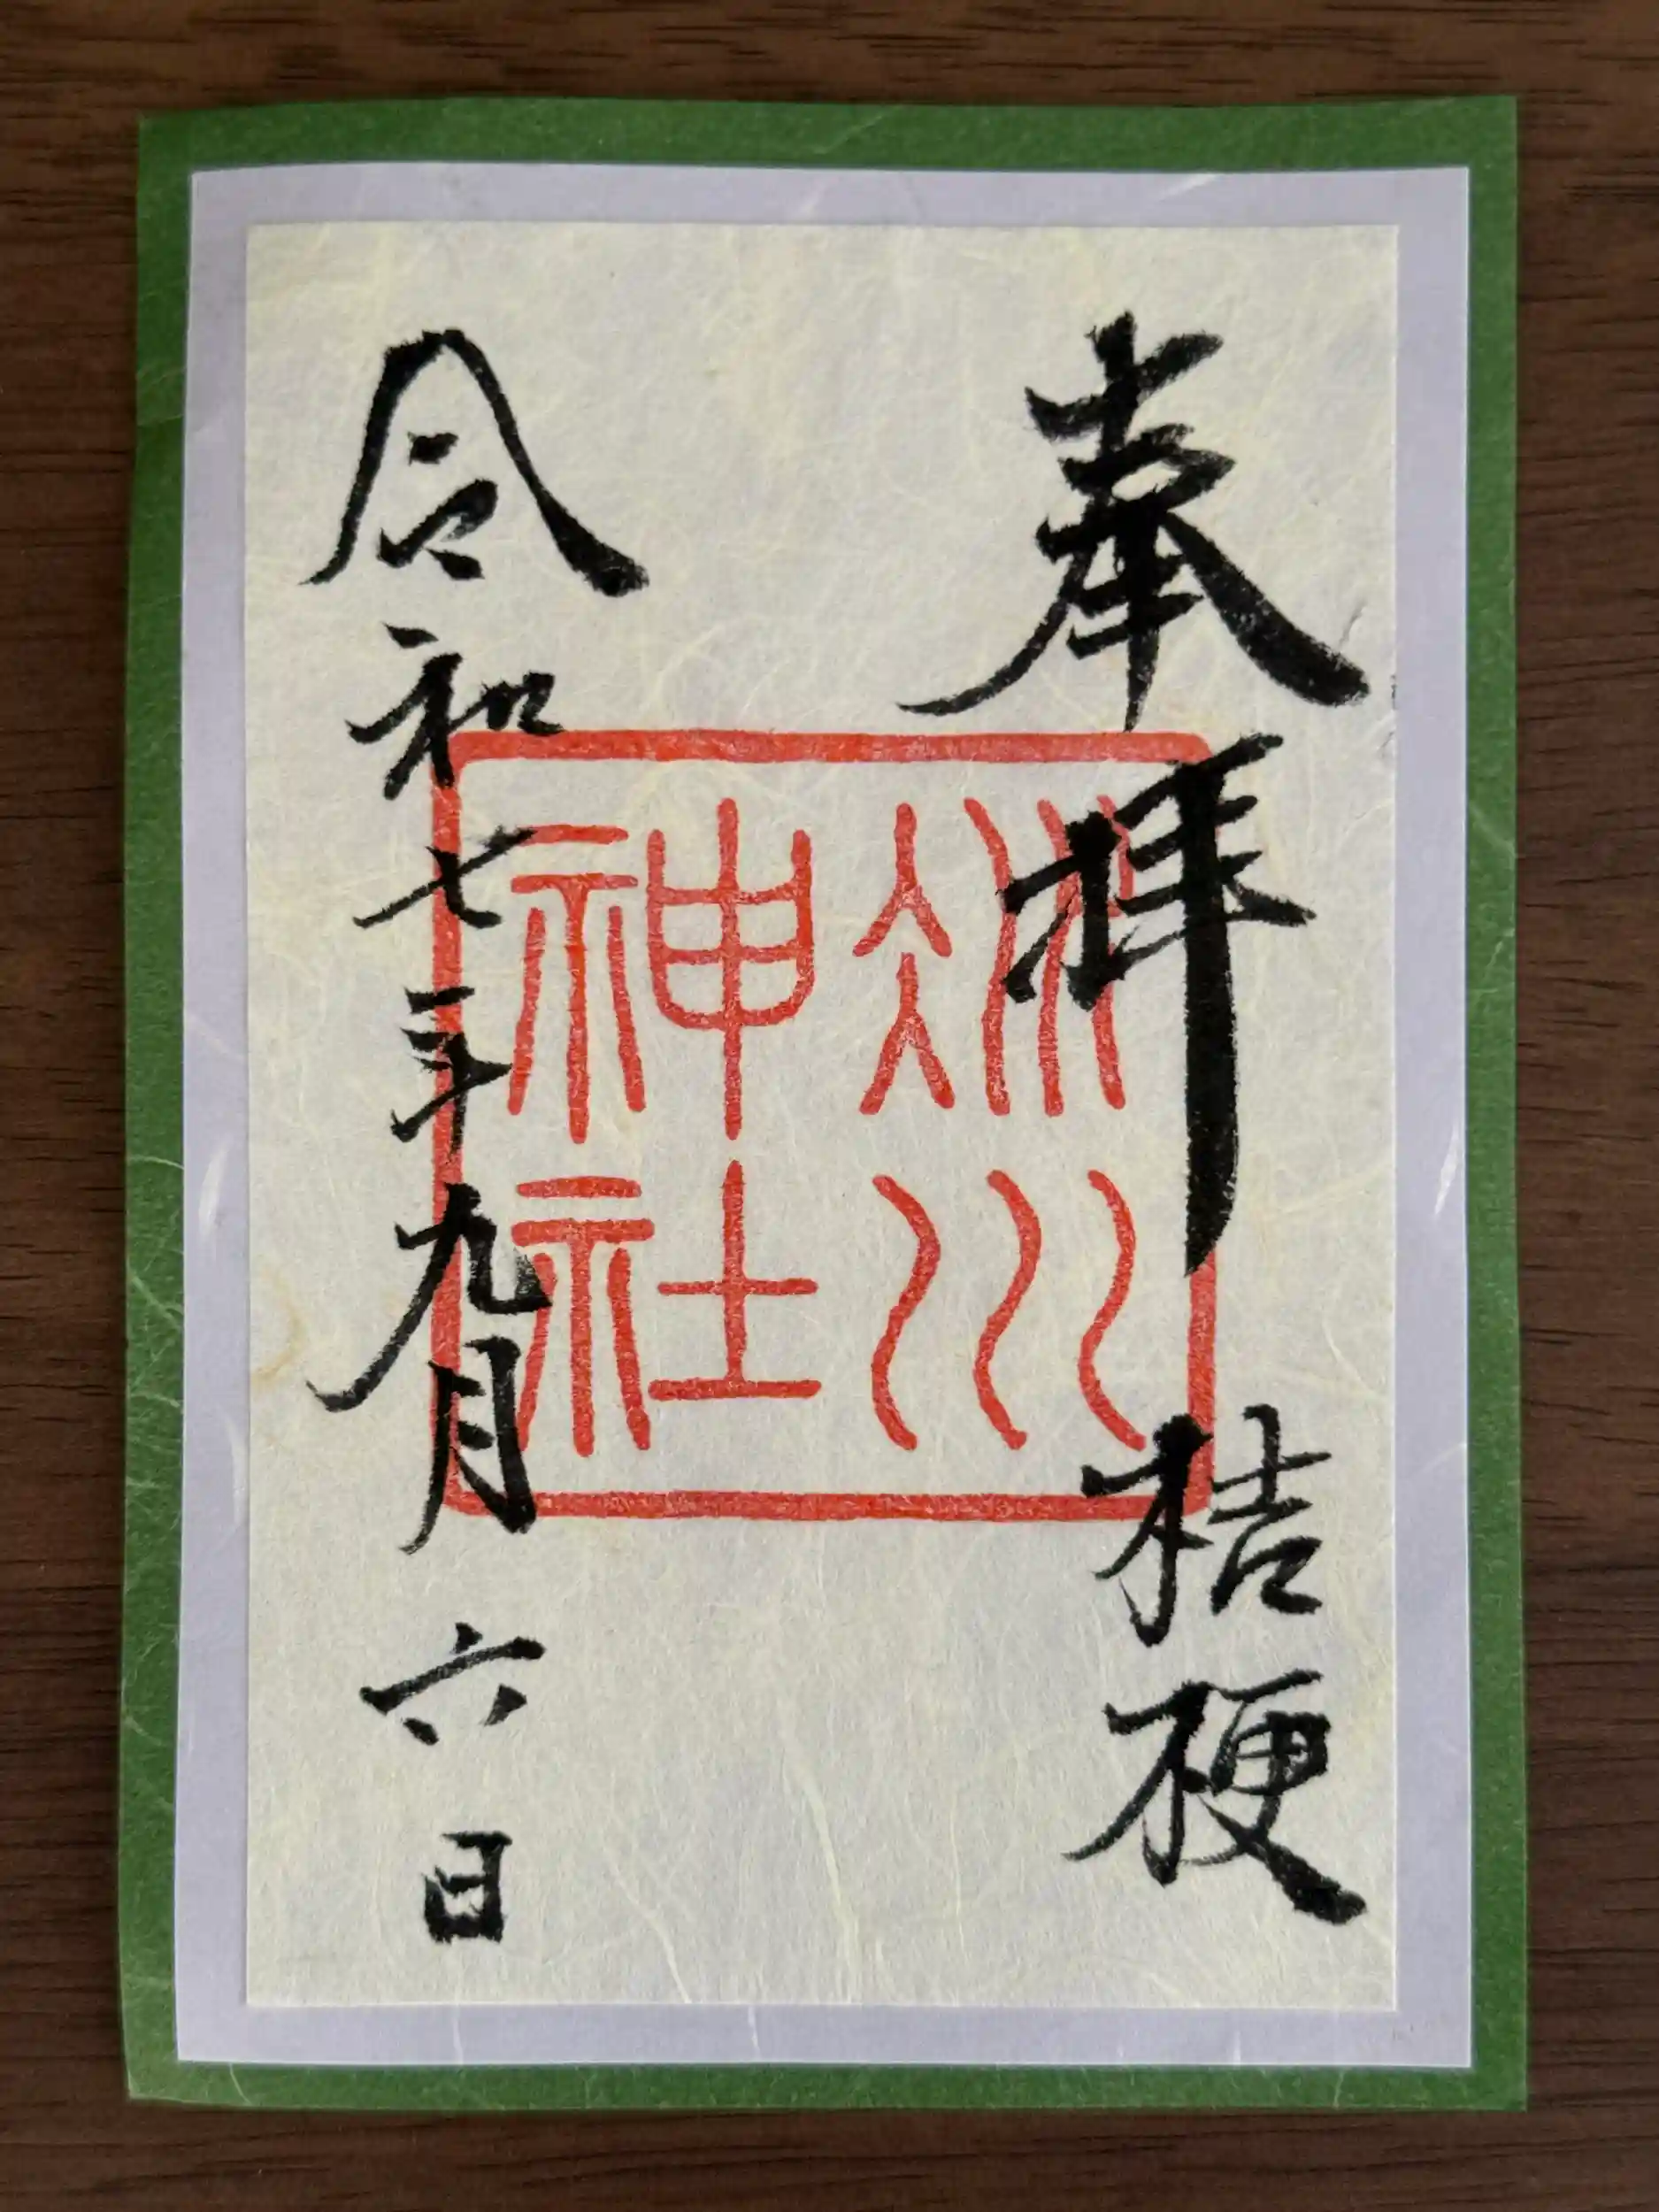 奉拝 桔梗
冰川
神社
令和七年九月六日